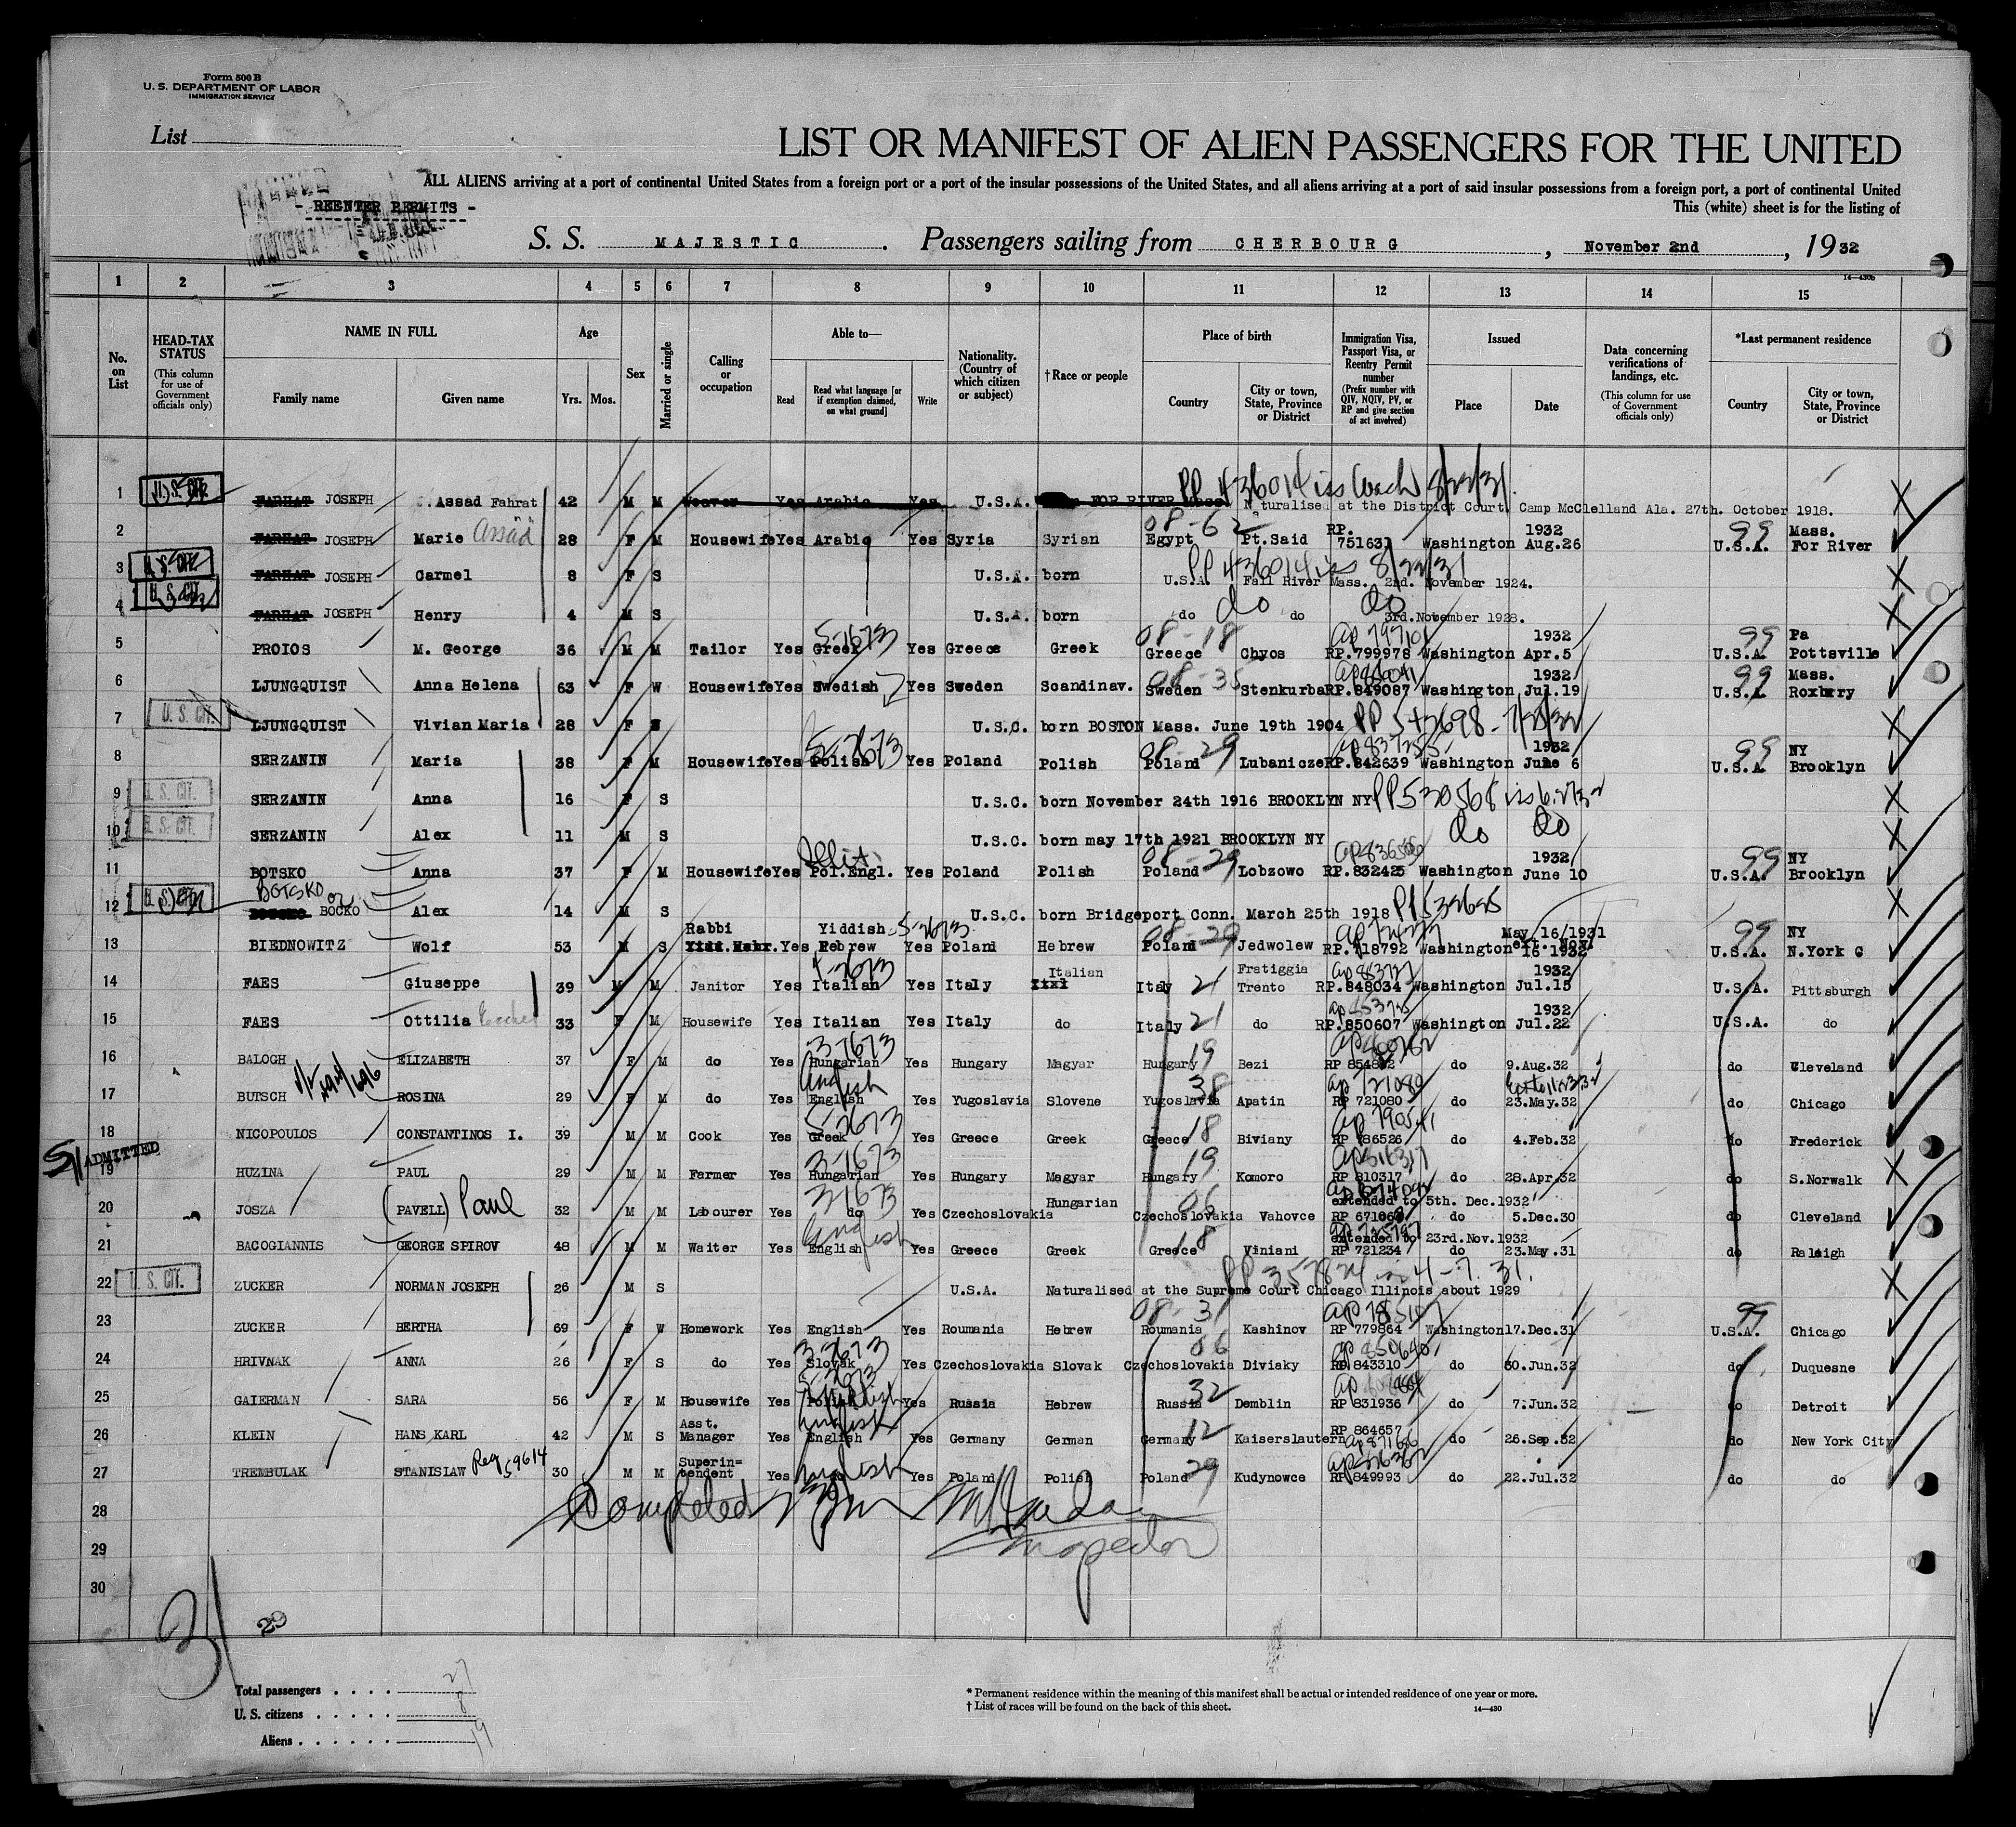 Form 500 B
U. S. DEPARTMENT OF LABOR
IMMIGRATION SERVICE
List
LIST OR MANIFEST OF ALIEN PASSENGERS FOR THE UNITED
ALL ALIENS arriving at a port of continental United States from a foreign port or a port of the insular possessions of the United States, and all aliens arriving at a port of said insular possessions from a foreign port, a port of continental United
This (white) sheet is for the listing of
- REENTER PERMITS -
S. S. MAJESTIC. Passengers sailing from CHERBOURG, November 2nd, 1932
14—430b
1 2 3 4 5 6 7 8 9 10 11 12 13 14 15
No. on List
HEAD-TAX STATUS
(This column for use of Government officials only)
NAME IN FULL
Family name
Given name
Age
Yrs. Mos.
Sex
Married or single
Calling or occupation
Able to—
Read
Read what language [or if exemption claimed, on what ground]
Write
Nationality. (Country of which citizen or subject)
† Race or people
Place of birth
Country
City or town, State, Province or District
Immigration Visa, Passport Visa, or Reentry Permit number
(Prefix number with QIV, NQIV, PV, or RP and give section of act involved)
Issued
Place
Date
Data concerning verifications of landings, etc.
(This column for use of Government officials only)
*Last permanent residence
Country
City or town, State, Province or District
PP 436014 iss 8/22/31
1 U. S. CIT. FARHAT JOSEPH Assad Fahrat 42 M M Weaver Yes Arabic Yes U.S.A. FOR RIVER Mass Naturalised at the District Court Camp McClelland Ala. 27th. October 1918.
08-62 RP. 1932 99 Mass.
2 FARHAT JOSEPH Marie Assad 28 F M Housewife Yes Arabic Yes Syria Syrian Egypt Pt.Said 751631 Washington Aug.26 U.S.A. For River
PP 436014 iss 8/22/31
3 U. S. CIT. FARHAT JOSEPH Carmel 8 F S U.S.A. born U.S.A. Fall River Mass. 2nd. November 1924.
do do
4 U. S. CIT. FARHAT JOSEPH Henry 4 M S U.S.A. born do do 3rd.November 1928.
5-7673 08-18 1932 99 Pa
5 PROIOS M. George 36 M M Tailor Yes Greek Yes Greece Greek Greece Chyos RP.799978 Washington Apr.5 U.S.A. Pottsville
08-35 1932 99 Mass.
6 LJUNGQUIST Anna Helena 63 F W Housewife Yes Swedish Yes Sweden Scandinav. Sweden Stenkurba RP.849087 Washington Jul.19 U.S.A. Roxbery
7 U. S. CIT. LJUNGQUIST Vivian Maria 28 F S U.S.C. born BOSTON Mass. June 19th 1904 PP 543698
5-7673 08-29 1932 99 NY
8 SERZANIN Maria 38 F M Housewife Yes Polish Yes Poland Polish Poland Lubanicze RP.842639 Washington June 6 U.S.A. Brooklyn
9 U. S. CIT. SERZANIN Anna 16 F S U.S.C. born November 24th 1916 BROOKLYN NY PP 530568
10 U. S. CIT. SERZANIN Alex 11 M S U.S.C. born may 17th 1921 BROOKLYN NY do do
08-29 1932 99 NY
11 BOTSKO Anna 37 F M Housewife Yes Pol.Engl. Yes Poland Polish Poland Lobzowo RP.832425 Washington June 10 U.S.A. Brooklyn
BOTSKO or
12 U. S. CIT. BOTSKO BOCKO Alex 14 M S U.S.C. born Bridgeport Conn. March 25th 1918
Rabbi Yiddish 5-7673 08-29 May 16/1931 99 NY
13 BIEDNOWITZ Wolf 53 M S Yidd.Hebr. Yes Hebrew Yes Poland Hebrew Poland Jedwolew RP.718792 Washington ext. Nov. 16 1932 U.S.A. N.York C
Italian Fratiggia 1932
14 FAES Giuseppe 39 M M Janitor Yes Italian Yes Italy Italy 21 Trento RP.848034 Washington Jul.15 U.S.A. Pittsburgh
1932
15 FAES Ottilia 33 F M Housewife Yes Italian Yes Italy do Italy 21 do RP.850607 Washington Jul.22 U.S.A. do
3-7673
16 BALOGH ELIZABETH 37 F M do Yes Hungarian Yes Hungary Magyar Hungary 19 Bezi RP 854802 do 9.Aug.32 do Cleveland
English
17 BUTSCH ROSINA 29 F M do Yes English Yes Yugoslavia Slovene Yugoslavia 38 Apatin RP 721080 do 23.May.32 do Chicago
5-7673
18 NICOPOULOS CONSTANTINOS I. 39 M M Cook Yes Greek Yes Greece Greek Greece 18 Biviany RP 786526 do 4.Feb.32 do Frederick
SI ADMITTED 3-7673
19 HUZINA PAUL 29 M M Farmer Yes Hungarian Yes Hungary Magyar Hungary 19 Komoro RP 810317 do 28.Apr.32 do S.Norwalk
3-7673 Hungarian 06 extended to 5th. Dec.1932
20 JOSZA (PAVELL) Paul 32 M M Labourer Yes do Yes Czechoslovakia Czechoslovakia Vahovce RP 671060 do 5.Dec.30 do Cleveland
English extended to 23rd.Nov.1932
21 BACOGIANNIS GEORGE SPIROV 48 M M Waiter Yes English Yes Greece Greek Greece 18 Viniani RP 721234 do 23.May.31 do Raleigh
22 U. S. CIT. ZUCKER NORMAN JOSEPH 26 M S U.S.A. Naturalised at the Supreme Court Chicago Illinois about 1929
08-31 99
23 ZUCKER BERTHA 69 F W Homework Yes English Yes Roumania Hebrew Roumania Kashinov RP 779864 Washington 17.Dec.31 U.S.A. Chicago
3-7673 06
24 HRIVNAK ANNA 26 F S do Yes Slovak Yes Czechoslovakia Slovak Czechoslovakia Diviaky RP 843310 do 30.Jun.32 do Duquesne
25 GAIERMAN SARA 56 F M Housewife Yes Polish Yes Russia Hebrew Russia 32 Demblin RP 831936 do 7.Jun.32 do Detroit
Asst. English RP 864657
26 KLEIN HANS KARL 42 M S Manager Yes English Yes Germany German Germany 12 Kaiserslautern do 26.Sep.32 do New York City
Superin=
27 TREMBULAK STANISLAW Reg 59614 30 M M tendent Yes English Yes Poland Polish Poland 29 Kudynowce RP 849993 do 22.Jul.32 do do
28 Completed
29 Inspector
30
31
29
Total passengers 27
U. S. citizens 8
Aliens 19
* Permanent residence within the meaning of this manifest shall be actual or intended residence of one year or more.
† List of races will be found on the back of this sheet.
14—430